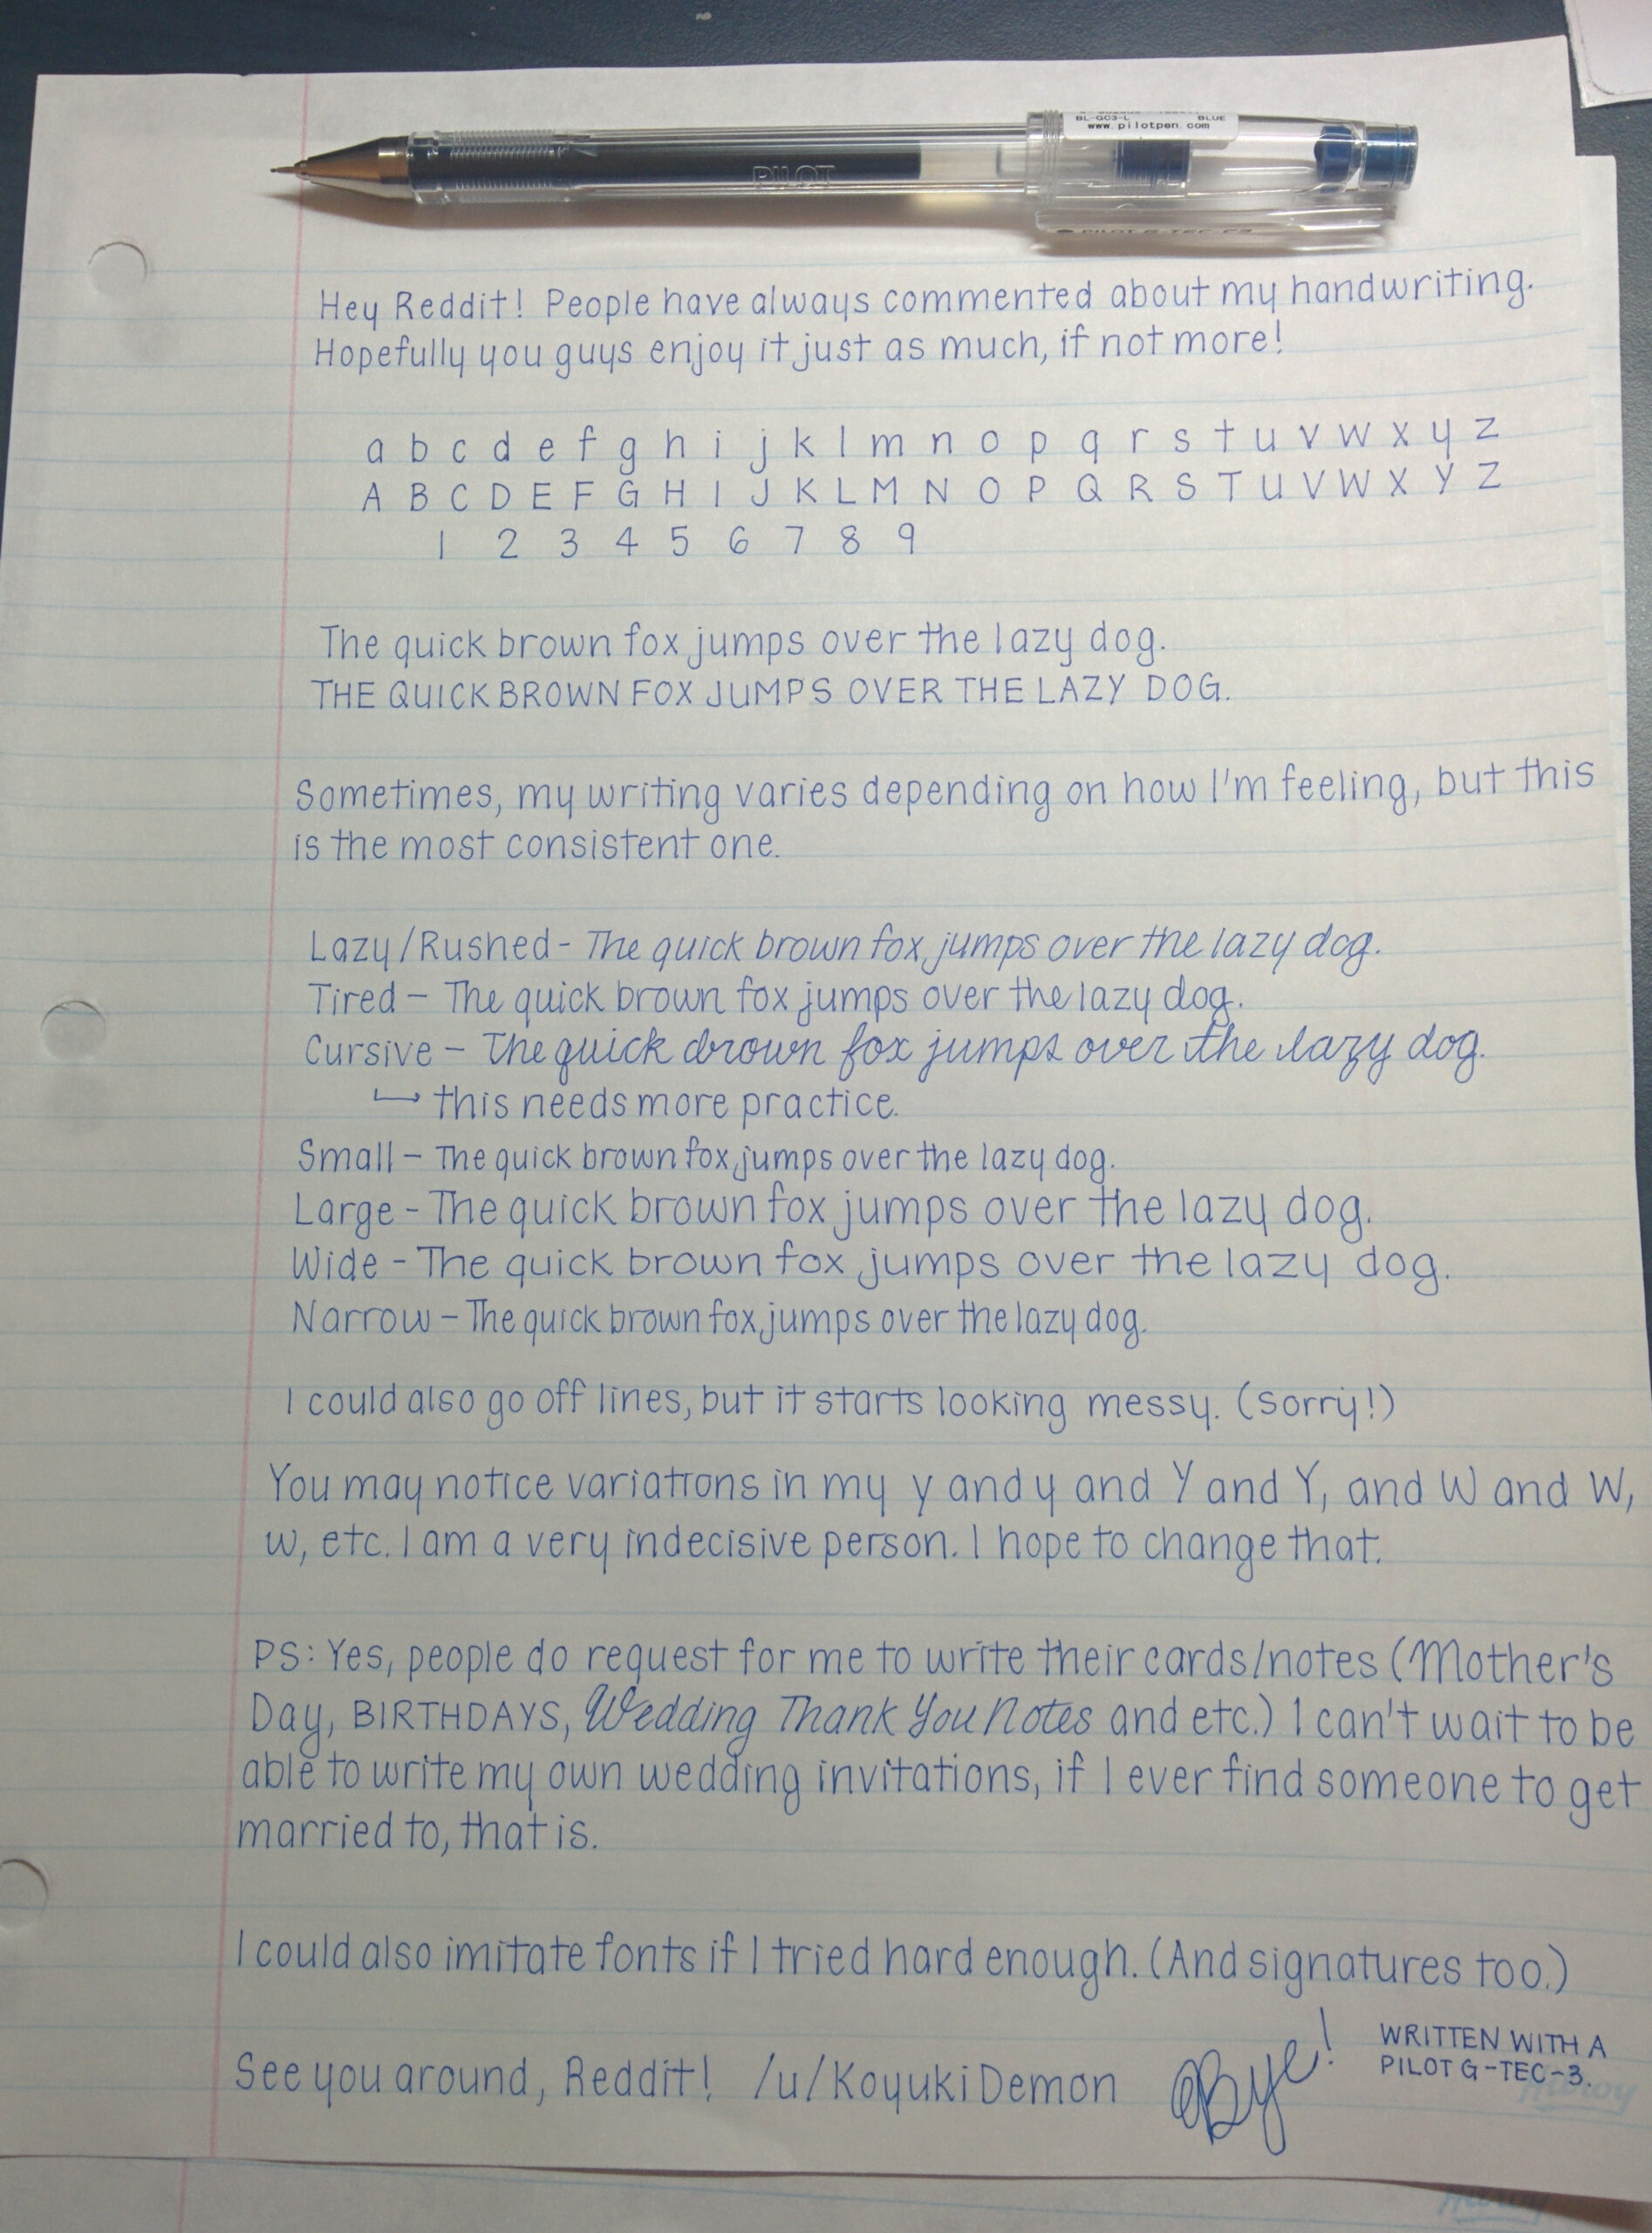 BL-GC3-L BLUE
www.pilotpen.com
PILOT
PILOT G-TEC-C3
Hey Reddit! People have always commented about my handwriting.
Hopefully you guys enjoy it just as much, if not more!
a b c d e f g h i j k l m n o p q r s t u v w x y z
A B C D E F G H I J K L M N O P Q R S T U V W X Y Z
1 2 3 4 5 6 7 8 9
The quick brown fox jumps over the lazy dog.
THE QUICK BROWN FOX JUMPS OVER THE LAZY DOG.
Sometimes, my writing varies depending on how I'm feeling, but this
is the most consistent one.
Lazy/Rushed - The quick brown fox jumps over the lazy dog.
Tired - The quick brown fox jumps over the lazy dog.
Cursive - The quick brown fox jumps over the lazy dog.
↳ this needs more practice.
Small - The quick brown fox jumps over the lazy dog.
Large - The quick brown fox jumps over the lazy dog.
Wide - The quick brown fox jumps over the lazy dog.
Narrow - The quick brown fox jumps over the lazy dog.
I could also go off lines, but it starts looking messy. (sorry!)
You may notice variations in my y and y and Y and Y, and W and W,
w, etc. I am a very indecisive person. I hope to change that.
PS: Yes, people do request for me to write their cards/notes (Mother's
Day, BIRTHDAYS, Wedding Thank You Notes and etc.) I can't wait to be
able to write my own wedding invitations, if I ever find someone to get
married to, that is.
I could also imitate fonts if I tried hard enough. (And signatures too.)
See you around, Reddit! /u/KoyukiDemon Bye!
WRITTEN WITH A
PILOT G-TEC-3.